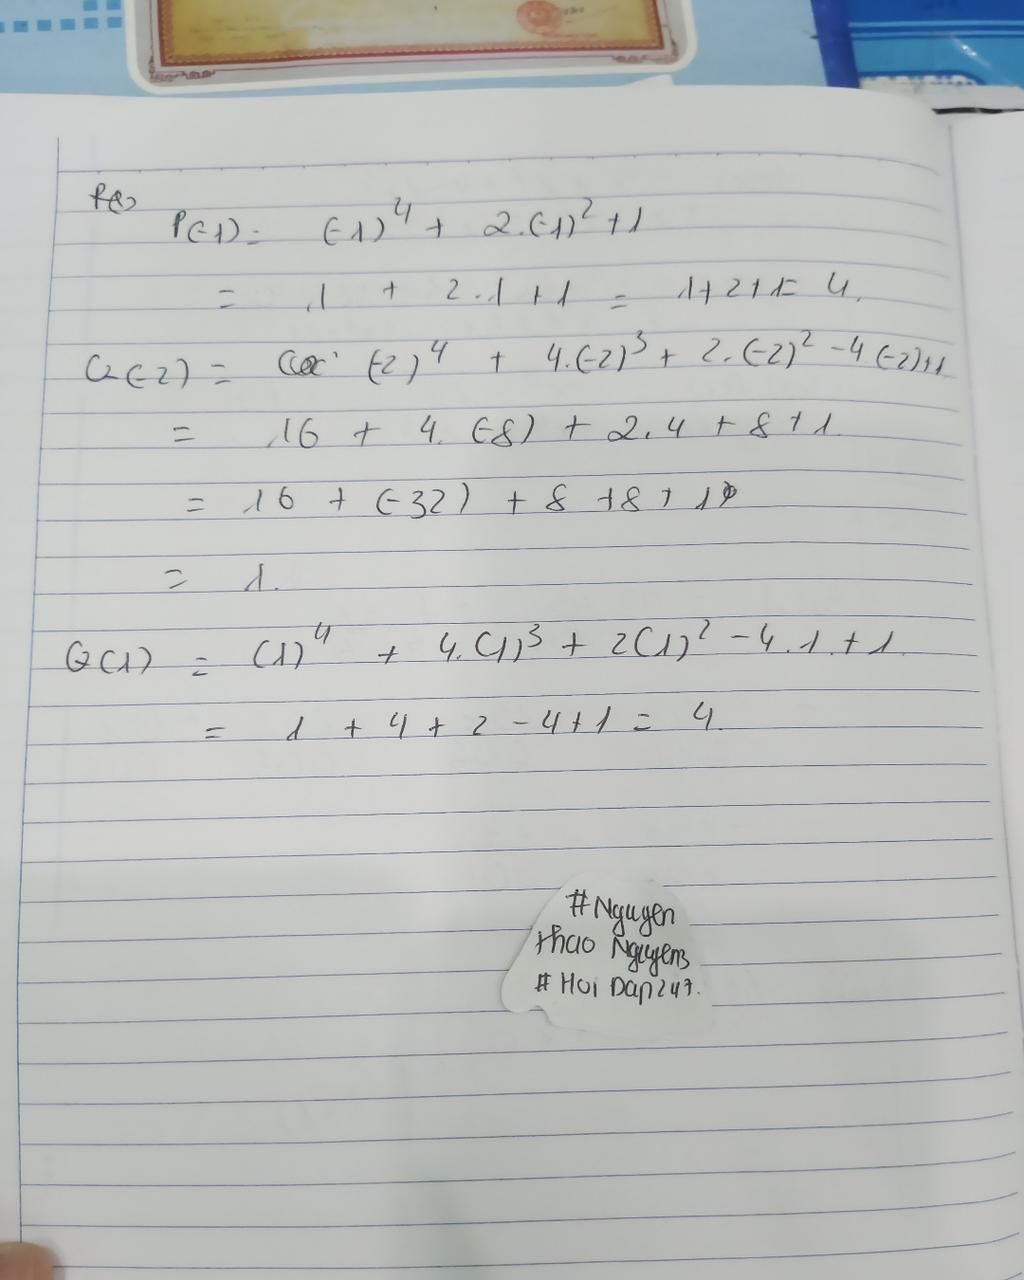 P(-1) = (-1)⁴ + 2.(-1)² + 1
= 1 + 2.1 + 1 = 1+2+1= 4.
Q(-2) = (-2)⁴ + 4.(-2)³ + 2.(-2)² - 4(-2)+1
= 16 + 4. (-8) + 2.4 + 8 + 1
= 16 + (-32) + 8 + 8 + 1
= 1.
Q(1) = (1)⁴ + 4.(1)³ + 2(1)² - 4.1 + 1.
= 1 + 4 + 2 - 4 + 1 = 4.
#Nguyen
thao Nguyen
# Hoi Dap247.